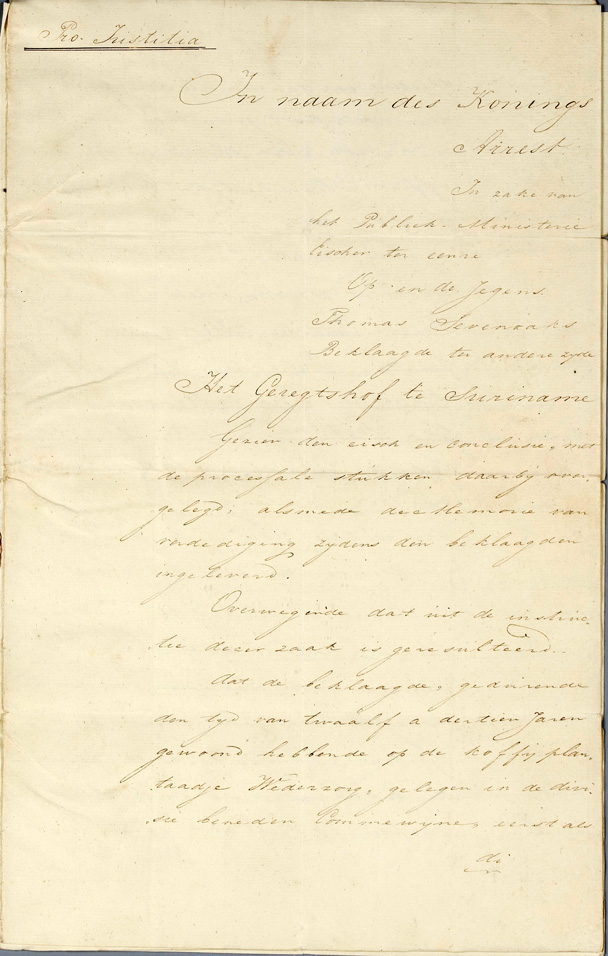 Pro. Justitia
In naam des Konings
Arrest.
In zake van
het Publiek Ministerie
Eischer ter eenre
Op en de Jegens
Thomas Sevenoaks
Beklaagde ter andere zyde
Het Geregtshof te Suriname
Gezien den eisch en conclusie, met
de processale stukken daarbij over,
gelegd; alsmede de Memorie van
verdediging zijdens den beklaagden
ingeleverd.
Overwegende dat uit de instruc,
tie dezer zaak is geresulteerd.
dat de beklaagde, gedurende
den tyd van twaalf a dertien Jaren
gewoond hebbende op de koffij plan,
taadje Wederzorg, gelegen in de divi,
sie beneden Commewijne, eerst als
di